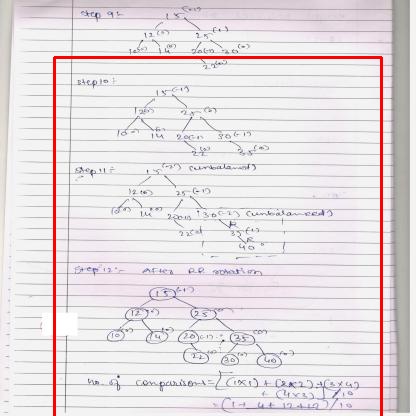 Step 9:-
15(-1)
12(0) 25(+)
10(0) 14(0) 20(-1) 30(0)
22(0)
Step 10:-
15(-1)
12(0) 25(0)
10(0) 14 20(-1) 30(-1)
22(0) 35(0)
Step 11:- 15(-2) (unbalanced)
12(0) 25(-1)
10(0) 14(0) 20(-1) 30(-2) (unbalanced)
R
22(0) 35(-1)
R
40°
Step 12:- After RR rotation
15(-1)
12(0) 25
10(0) 14(0) 20(-1) 35(0)
22(0) 30(0) 40(0)
no. of comparisons = [(1x1) + (2x2) + (3x4)
+ (4x3)]/10
= (1+ 4+ 12+12)/10